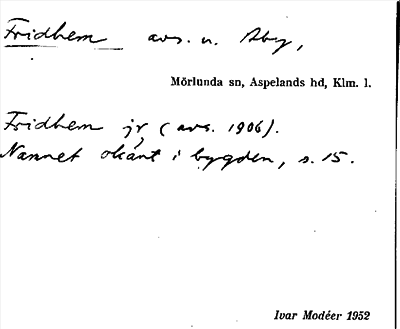 Fridhem avs. u. Åby,
Mörlunda sn, Aspelands hd, Klm. l.
Fridhem jr, (avs. 1906).
Namnet okänt i bygden, s. 15.
Ivar Modéer 1952